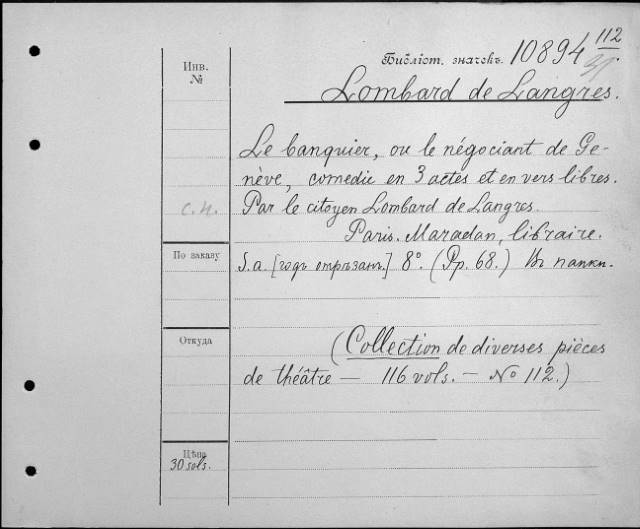 Инв.
№
Библіот. значекъ. 10894 112
Lombard de Langres.
Le banquier, ou le négociant de Ge-
nève, comedie en 3 actes et en vers libres.
С. Н.
Par le citoyen Lombard de Langres.
Paris. Maradan, libraire.
По заказу
S. a. [годъ отрѣзанъ.] 8°. (Pp. 68.) Въ папкѣ.
Откуда
(Collection de diverses pièces
de théâtre — 116 vols. — № 112.)
Цѣна
30 sols.